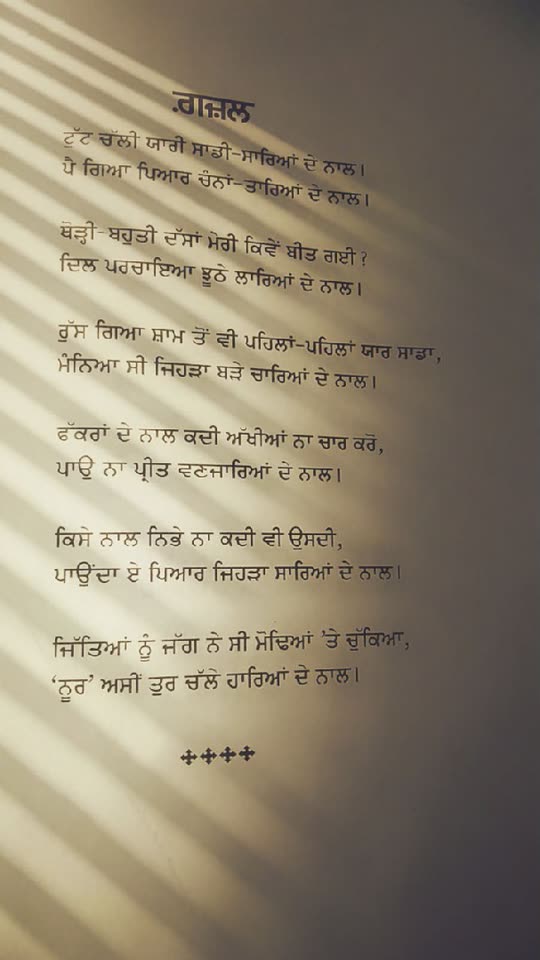 ਗ਼ਜ਼ਲ
ਟੁੱਟ ਚੱਲੀ ਯਾਰੀ ਸਾਡੀ-ਸਾਰਿਆਂ ਦੇ ਨਾਲ।
ਪੈ ਗਿਆ ਪਿਆਰ ਚੰਨਾਂ-ਤਾਰਿਆਂ ਦੇ ਨਾਲ।
ਥੋੜ੍ਹੀ-ਬਹੁਤੀ ਦੱਸਾਂ ਮੇਰੀ ਕਿਵੇਂ ਬੀਤ ਗਈ?
ਦਿਲ ਪਰਚਾਇਆ ਝੂਠੇ ਲਾਰਿਆਂ ਦੇ ਨਾਲ।
ਰੁੱਸ ਗਿਆ ਸ਼ਾਮ ਤੋਂ ਵੀ ਪਹਿਲਾਂ-ਪਹਿਲਾਂ ਯਾਰ ਸਾਡਾ,
ਮੰਨਿਆ ਸੀ ਜਿਹੜਾ ਬੜੇ ਚਾਰਿਆਂ ਦੇ ਨਾਲ।
ਫੱਕਰਾਂ ਦੇ ਨਾਲ ਕਦੀ ਅੱਖੀਆਂ ਨਾ ਚਾਰ ਕਰੋ,
ਪਾਉ ਨਾ ਪ੍ਰੀਤ ਵਣਜਾਰਿਆਂ ਦੇ ਨਾਲ।
ਕਿਸੇ ਨਾਲ ਨਿਭੇ ਨਾ ਕਦੀ ਵੀ ਉਸਦੀ,
ਪਾਉਂਦਾ ਏ ਪਿਆਰ ਜਿਹੜਾ ਸਾਰਿਆਂ ਦੇ ਨਾਲ।
ਜਿੱਤਿਆਂ ਨੂੰ ਜੱਗ ਨੇ ਸੀ ਮੋਢਿਆਂ 'ਤੇ ਚੁੱਕਿਆ,
'ਨੂਰ' ਅਸੀਂ ਤੁਰ ਚੱਲੇ ਹਾਰਿਆਂ ਦੇ ਨਾਲ।